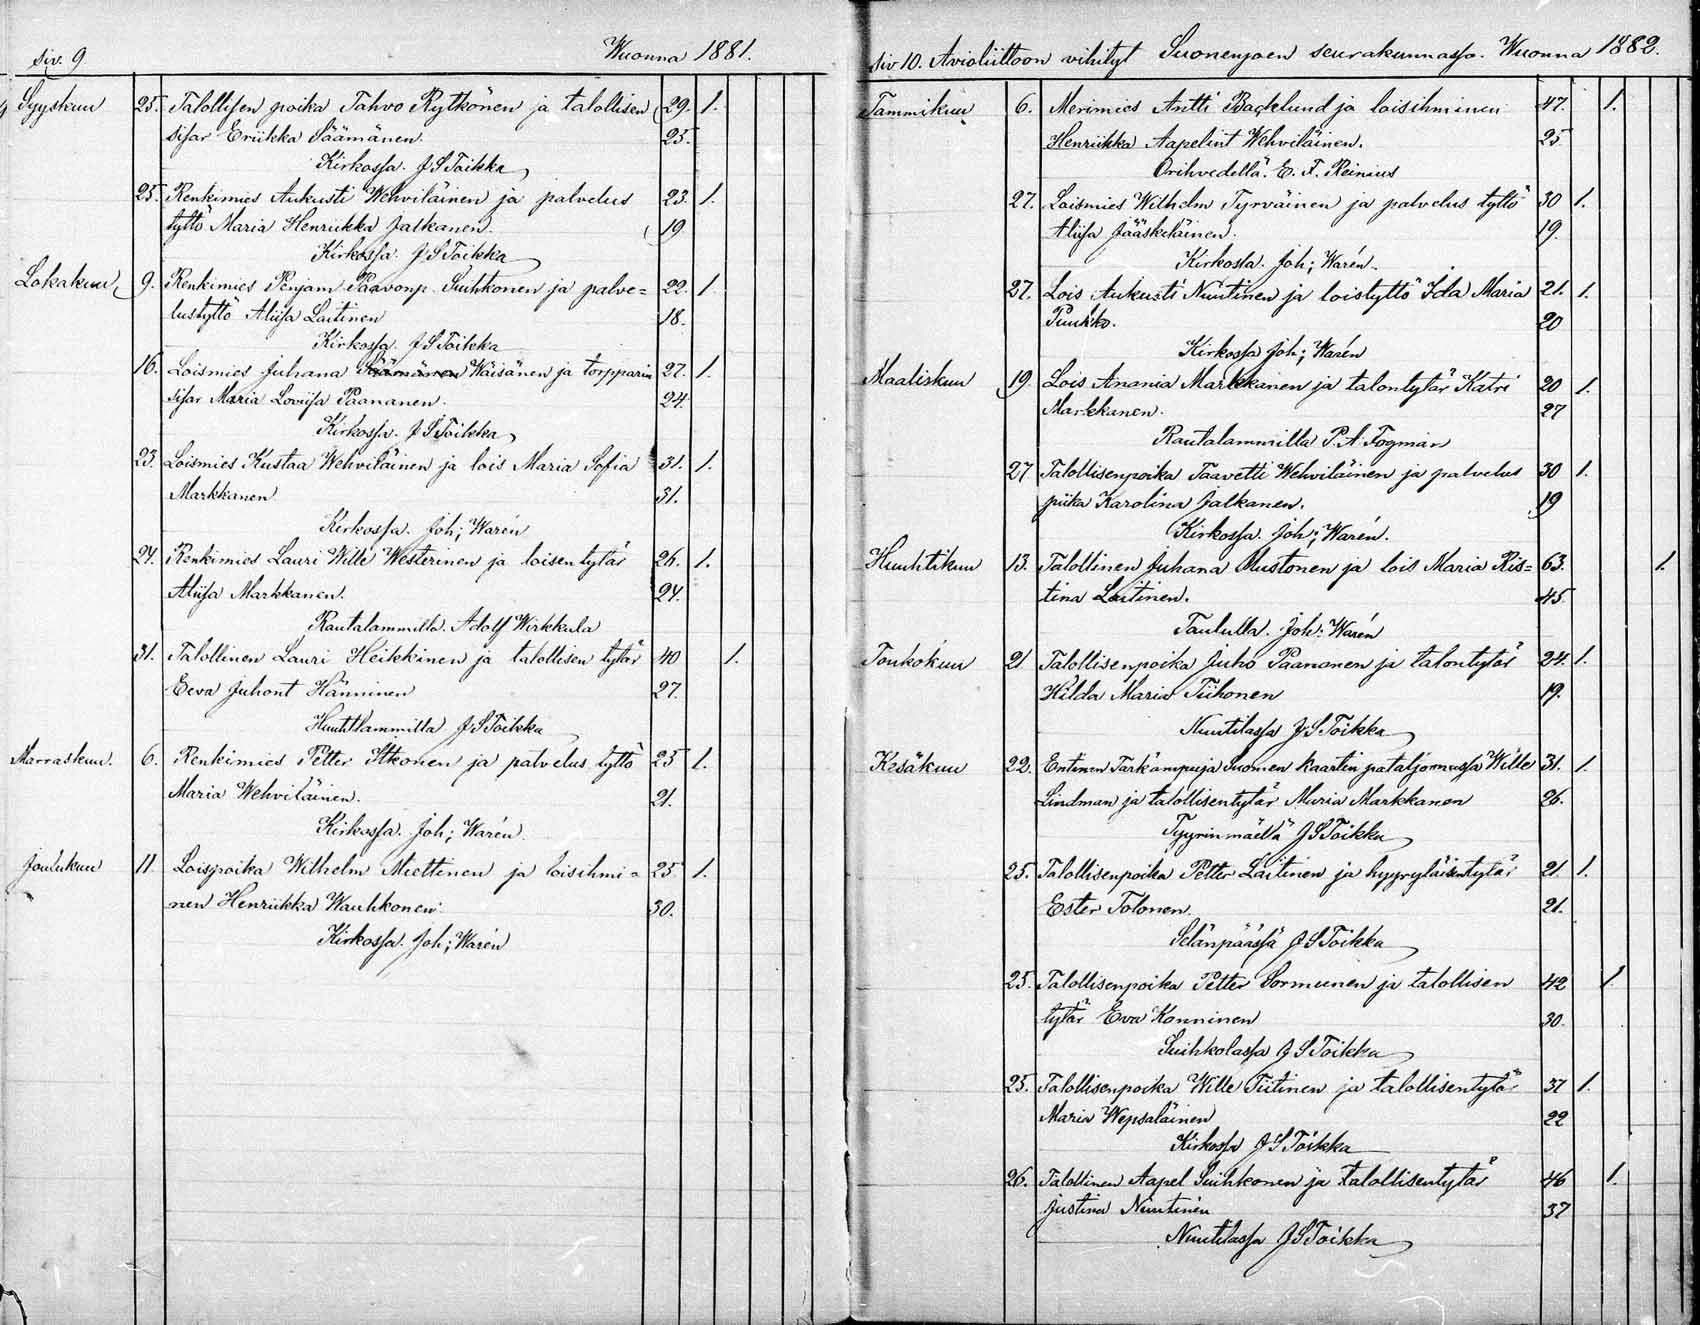 siv. 9 Wuonna 1881.
Syyskuu 25. Talollisen poika Tahvo Rytkönen ja talollisen 29. 1.
sisar Eriikka Säämänen. 25.
Kirkossa. J S Toikka
25. Renkimies Aukusti Wehviläinen ja palvelus 23. 1.
tyttö Maria Henriikka Jalkanen. 19
Kirkossa. J S Toikka
Lokakuu 9. Renkimies Penjam Paavonp. Suihkonen ja palve= 22. 1.
lustyttö Aliisa Laitinen 18.
Kirkossa. J S Toikka
16. Loismies Juhana Säämänen Wäisänen ja torpparin 27. 1.
sisar Maria Loviisa Paananen. 24.
Kirkossa. J S Toikka
23. Loismies Kustaa Wehviläinen ja lois Maria Sofia 31. 1.
Markkanen 31.
Kirkossa. Joh; Warén
24. Renkimies Lauri Wille Westerinen ja loisen tytär 26. 1.
Aliisa Markkanen. 24.
Rautalammilla. Adolf Wirkkula
31. Talollinen Lauri Heikkinen ja talollisen tytär 40 1.
Eeva Juhont Hänninen 27.
J S Toikka
Marraskuu. 6. Renkimies Petter Itkonen ja palvelus tyttö 25 1.
Maria Wehviläinen. 21.
Kirkossa. Joh; Warén
Joulukuu 11 Loispoika Wilhelm Miettinen ja loisihmi= 25. 1.
nen Henriikka Wauhkonen 30.
Kirkossa. Joh; Warén
siv 10. Avioliittoon vihityt Suonenjoen seurakunnassa. Wuonna 1882.
Tammikuu 6. Merimies Antti Backlund ja loisihminen 47. 1.
Henriikka Aapelint Wehviläinen. 25
Orihvedellä. E. F. Reinius
27. Loismies Wilhelm Tyrväinen ja palvelus tyttö 30 1.
Aliisa Jääskeläinen. 19.
Kirkossa. Joh; Warén
27. Lois Aukusti Nuutinen ja loistyttö Ida Maria 21. 1.
Puukko. 20
Kirkossa Joh; Warén
Maaliskuu 19. Lois Anania Markkanen ja talontytär Katri 20 1.
Markkanen. 27
Rautalammilla P. A. Fogman
27 Talollisenpoika Taavetti Wehviläinen ja palvelus 30 1.
piika Karolina Jalkanen. 19
Kirkossa. Joh; Warén.
Huuhtikuu 13. Talollinen Juhana Mustonen ja lois Maria Ris= 63. 1.
tina Laitinen. 45
Joh: Warén
Toukokuu 21. Talollisenpoika Juho Paananen ja talontytär 24. 1.
Hilda Maria Tiihonen 19.
Nuutilassa J S Toikka
Kesäkuu 22. Entinen Tark'ampuja Suomen kaartin pataljoonassa Wille 31. 1.
Lindman ja talollisentytär Maria Markkanen 26.
Tyyrinmäellä J S Toikka
25. Talollisenpoika Petter Laitinen ja hyyryläisentytär 21. 1.
Ester Tolonen. 21.
Selänpäässä J S Toikka
25. Talollisenpoika Petter Sormunen ja talollisen 42 1.
tytär Eva Konninen 30.
Suihkolassa J S Toikka
25. Talollisenpoika Wille Tiitinen ja talollisentytär 37 1.
Maria Wepsäläinen 22
Kirkossa J S Toikka
26. Talollinen Aapel Suihkonen ja talollisentytär 46 1.
Justina Nuutinen 37
Nuutilassa J S Toikka